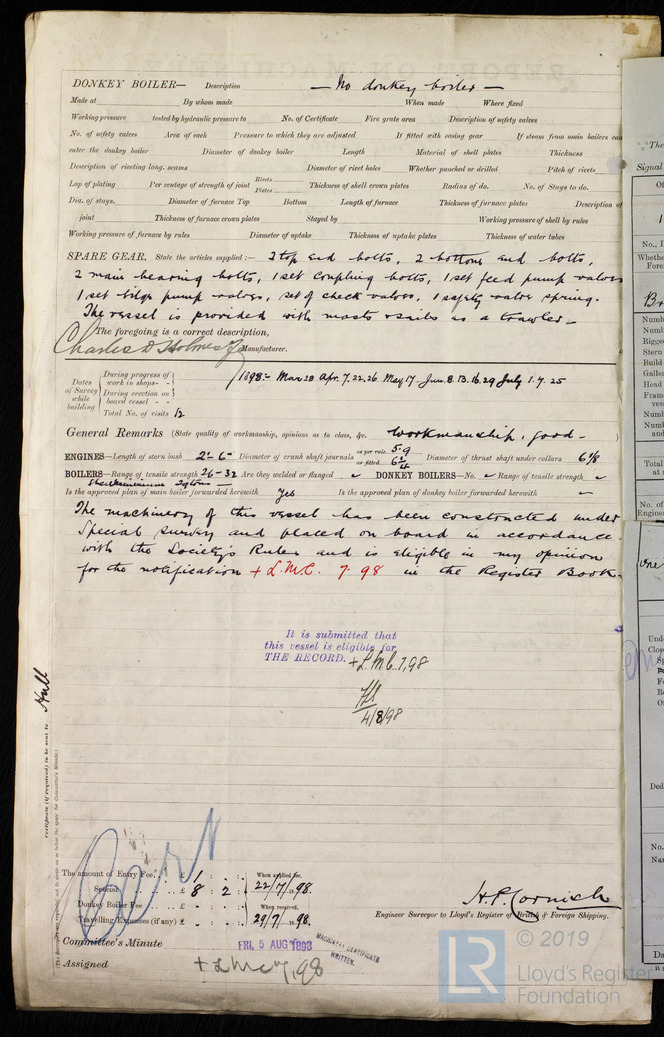 DONKEY BOILER— Description — No donkey boiler —
Made at By whom made When made Where fixed
Working pressure tested by hydraulic pressure to No. of Certificate Fire grate area Description of safety valves
No. of safety valves Area of each Pressure to which they are adjusted If fitted with easing gear If steam from main boilers can
enter the donkey boiler Diameter of donkey boiler Length Material of shell plates Thickness
Description of riveting long. seams Diameter of rivet holes Whether punched or drilled Pitch of rivets
Lap of plating Per centage of strength of joint Rivets Plates Thickness of shell crown plates Radius of do. No. of Stays to do.
Dia. of stays. Diameter of furnace Top Bottom Length of furnace Thickness of furnace plates Description of
joint Thickness of furnace crown plates Stayed by Working pressure of shell by rules
Working pressure of furnace by rules Diameter of uptake Thickness of uptake plates Thickness of water tubes
SPARE GEAR. State the articles supplied:— 2 top end bolts, 2 bottom end bolts,
2 main bearing bolts, 1 set coupling bolts, 1 set feed pump valves
1 set bilge pump valves, set of check valves, 1 safety valve spring.
The vessel is provided with masts & sails as a trawler—
The foregoing is a correct description,
Charles D Holmes Manufacturer.
Dates of Survey while building
During progress of work in shops - -
During erection on board vessel - -
Total No. of visits 12
1898:- Mar 28 Apr. 7. 22. 26. May 17. Jun. 8. 13. 16. 29 July 1. 7. 25
General Remarks (State quality of workmanship, opinions as to class, &c. Workmanship, good—)
ENGINES—Length of stern bush 2'-6" Diameter of crank shaft journals as per rule 5.9 as fitted 6 1/4 Diameter of thrust shaft under collars 6 1/8
BOILERS—Range of tensile strength 26-32 Are they welded or flanged DONKEY BOILERS—No. Range of tensile strength
Is the approved plan of main boiler forwarded herewith Yes Is the approved plan of donkey boiler forwarded herewith —
The machinery of this vessel has been constructed under
Special survey and placed on board in accordance
with the Society's Rules and is eligible in my opinion
for the notification + L.M.C. 7.98 in the Register Book.
It is submitted that
this vessel is eligible for
THE RECORD. + L.M.C. 7,98
4/8/98
Certificate (if required) to be sent to Hull
The amount of Entry Fee. £ 1 : : When applied for,
Special £ 8 : 2 : 22/7/1898
Donkey Boiler Fee £ : : When received,
Travelling Expenses (if any) £ : : 29/7/1898
H.P. Cornish
Engineer Surveyor to Lloyd's Register of British & Foreign Shipping.
Committee's Minute FRI. 5 AUG 1898
MACHINERY CERTIFICATE
WRITTEN.
Assigned + LMC 7,98
LR © 2019
Lloyd's Register
Foundation